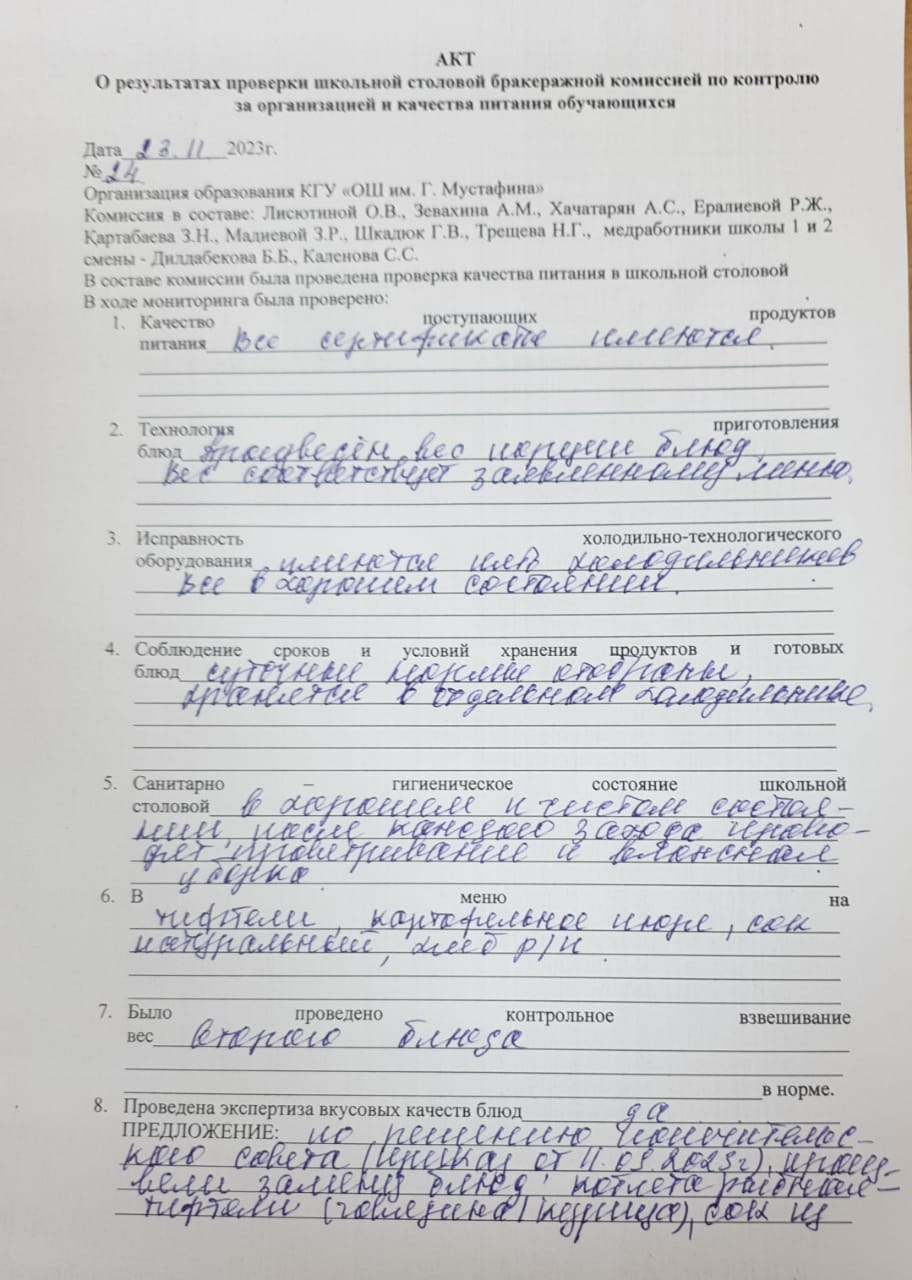 АКТ
О результатах проверки школьной столовой бракеражной комиссией по контролю
за организацией и качества питания обучающихся
Дата 23.11 2023г.
№ 24
Организация образования КГУ «ОШ им. Г. Мустафина»
Комиссия в составе: Лисютиной О.В., Зевахина А.М., Хачатарян А.С., Ералиевой Р.Ж.,
Картабаева З.Н., Мадиевой З.Р., Шкадюк Г.В., Трещева Н.Г., медработники школы 1 и 2
смены - Дилдабекова Б.Б., Каленова С.С.
В составе комиссии была проведена проверка качества питания в школьной столовой
В ходе мониторинга была проверено:
1. Качество поступающих продуктов
питания все сертификаты имеются.
2. Технология приготовления
блюд произведён вес порции блюд.
Вес соответствует заявленному меню.
3. Исправность холодильно-технологического
оборудования имеются пять холодильников
все в хорошем состоянии.
4. Соблюдение сроков и условий хранения продуктов и готовых
блюд суточные отобраны,
хранятся в отдельном холодильнике.
5. Санитарно – гигиеническое состояние школьной
столовой в хорошем и чистом состоя-
нии, после каждого захода прово-
дят проветривание и влажная
уборка.
6. В меню на
тифтели, картофельное пюре, сок
натуральный, хлеб р/п.
7. Было проведено контрольное взвешивание
вес второго блюда
в норме.
8. Проведена экспертиза вкусовых качеств блюд да
ПРЕДЛОЖЕНИЕ: по решению попечительс-
кого совета (приказ от 11.09.2023г), произ-
вели замену блюд: котлета рыбная -
тифтели (говядина/курица), сок из